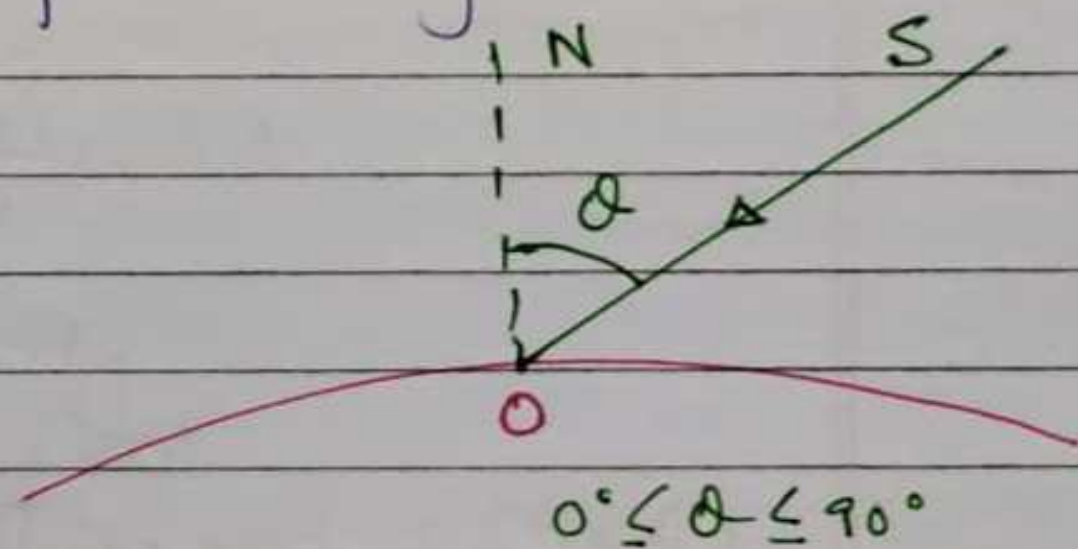 N S
θ
O
0° ≤ θ ≤ 90°